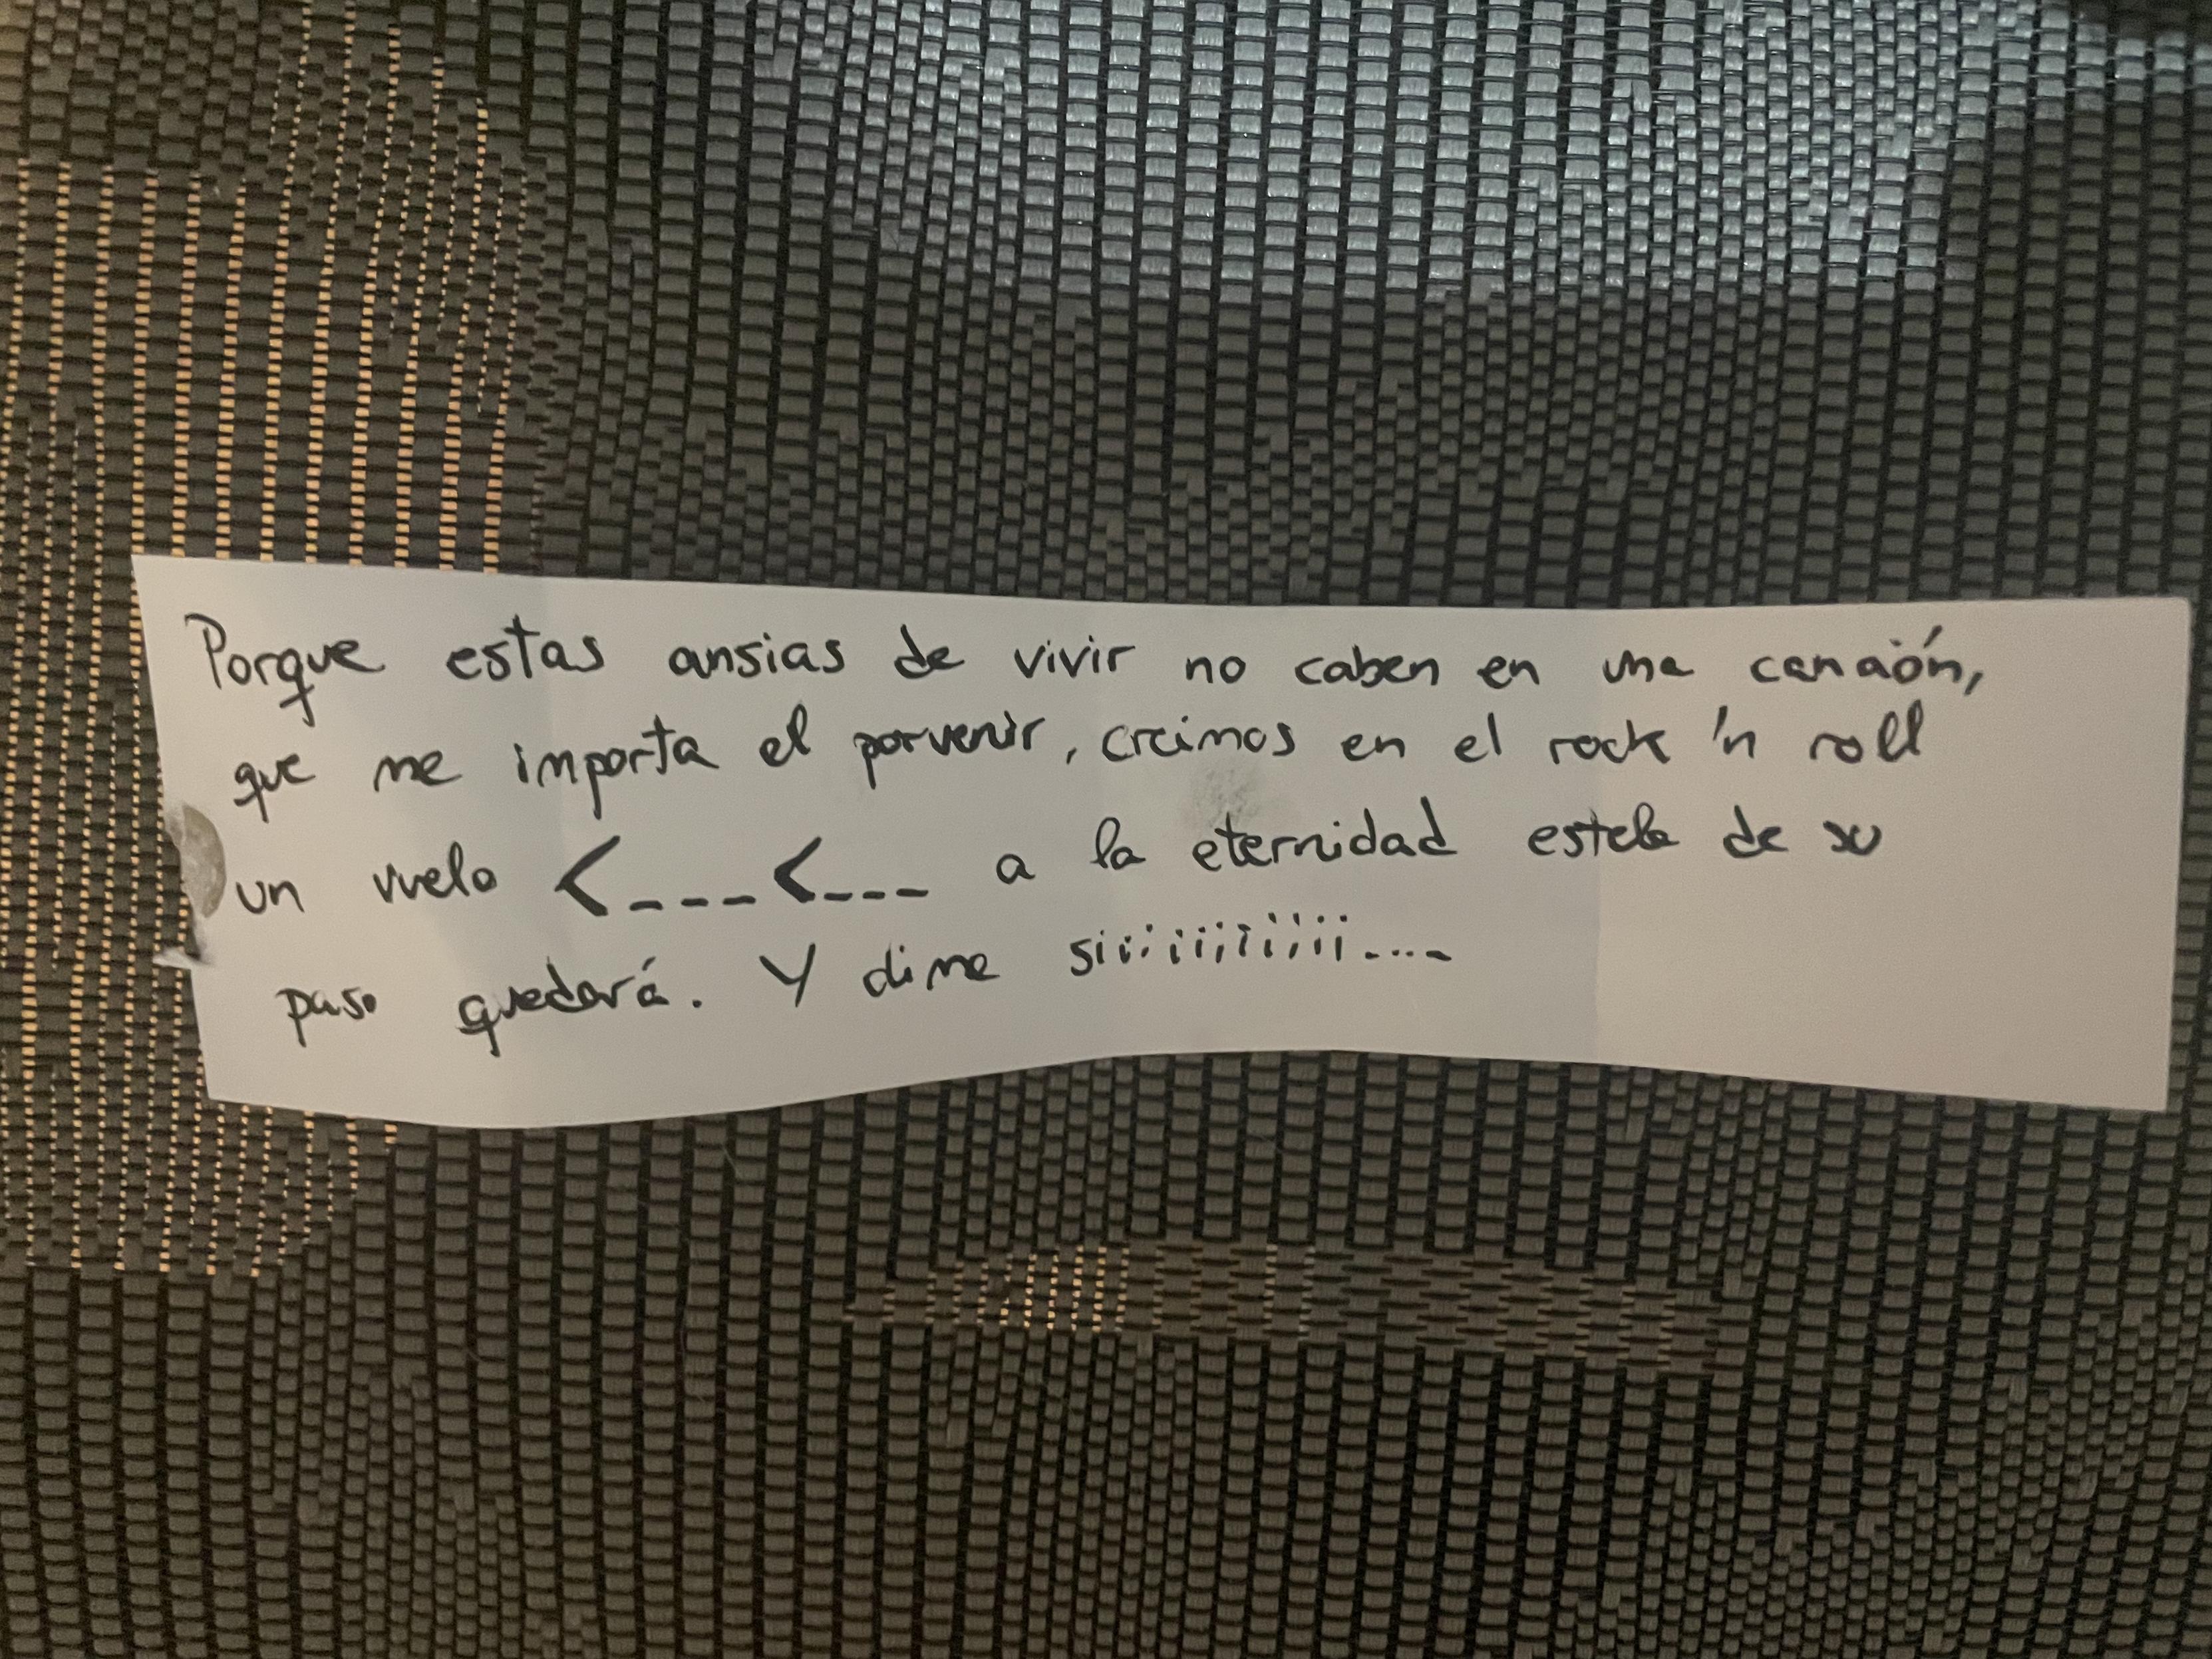 Porque estas ansias de vivir no caben en una canción,
que me importa el porvenir, creímos en el rock 'n roll
un vuelo <____<___ a la eternidad estela de su
paso quedará. Y dime siiiiiiiiiiii.....